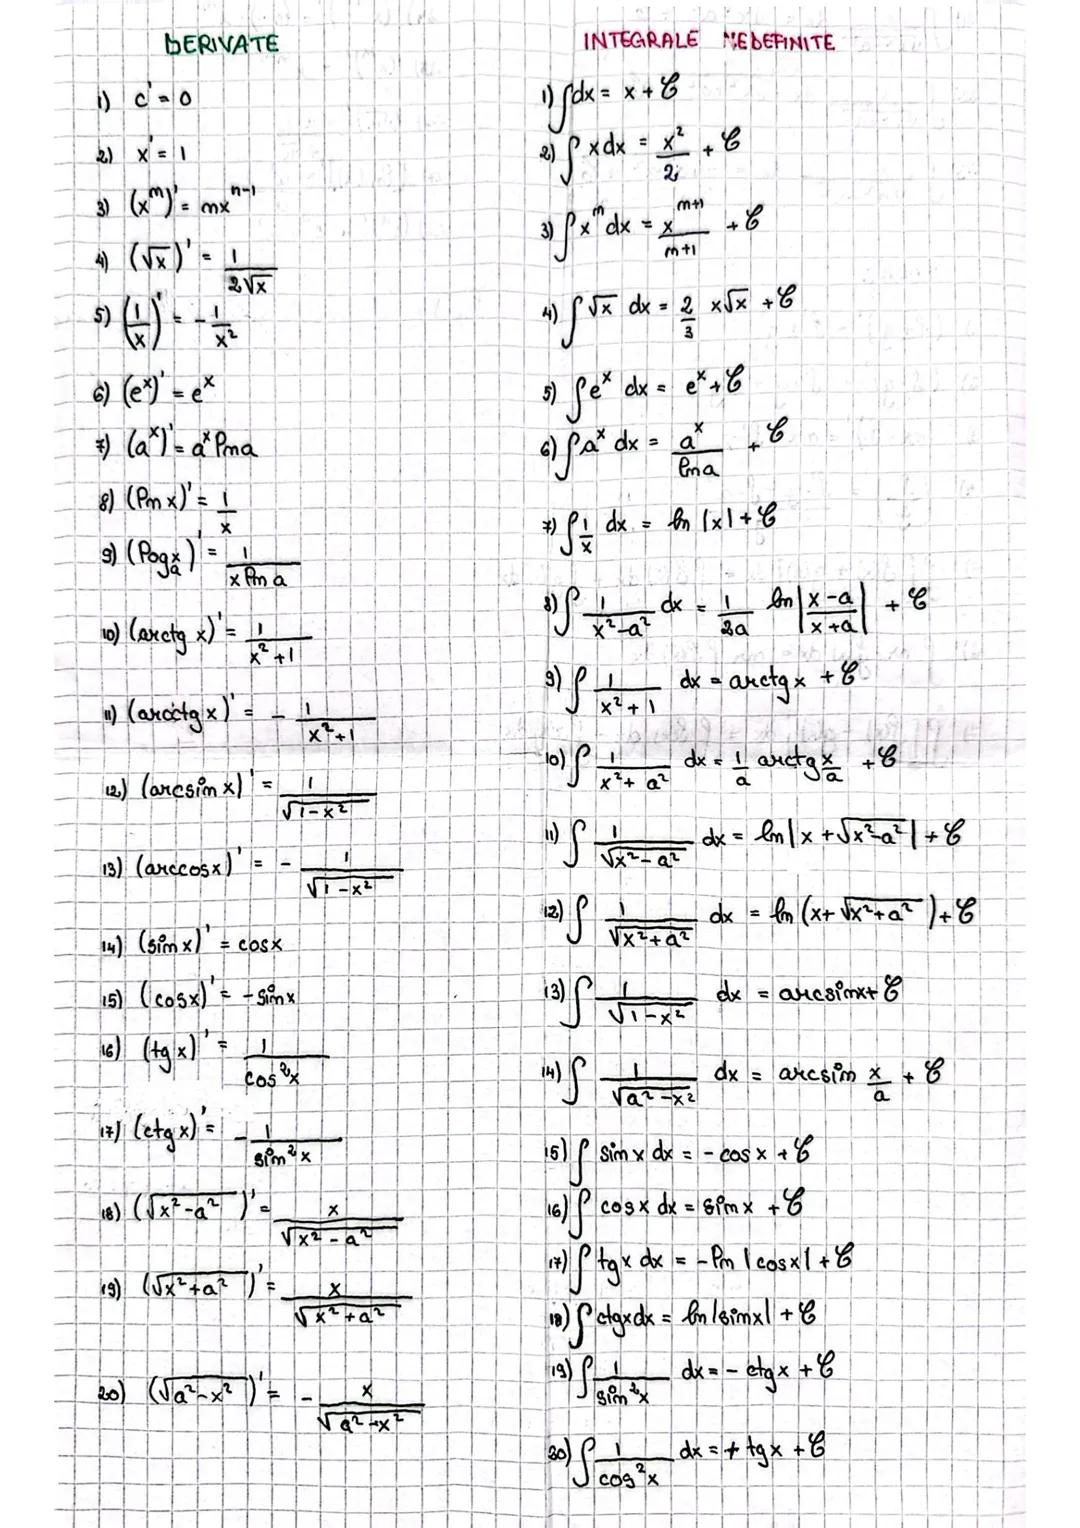 DERIVATE
1) c' = 0
2) x' = 1
3) (x^n)' = nx^{n-1}
4) (√x)' = 1/(2√x)
5) (1/x)' = -1/x²
6) (e^x)' = e^x
7) (a^x)' = a^x ln a
8) (ln x)' = 1/x
9) (log_a x)' = 1/(x ln a)
10) (arctg x)' = 1/(x²+1)
11) (arcctg x)' = -1/(x²+1)
12) (arcsin x)' = 1/√(1-x²)
13) (arccos x)' = -1/√(1-x²)
14) (sin x)' = cos x
15) (cos x)' = -sin x
16) (tg x)' = 1/cos²x
17) (ctg x)' = -1/sin²x
18) (√(x²-a²))' = x/√(x²-a²)
19) (√(x²+a²))' = x/√(x²+a²)
20) (√(a²-x²))' = -x/√(a²-x²)
INTEGRALE NEDEFINITE
1) ∫dx = x + C
2) ∫x dx = x²/2 + C
3) ∫x^n dx = x^{n+1}/(n+1) + C
4) ∫√x dx = 2/3 x√x + C
5) ∫e^x dx = e^x + C
6) ∫a^x dx = a^x/ln a + C
7) ∫1/x dx = ln |x| + C
8) ∫1/(x²-a²) dx = 1/2a ln |(x-a)/(x+a)| + C
9) ∫1/(x²+1) dx = arctg x + C
10) ∫1/(x²+a²) dx = 1/a arctg x/a + C
11) ∫1/√(x²-a²) dx = ln |x + √(x²-a²)| + C
12) ∫1/√(x²+a²) dx = ln (x+ √(x²+a²)) + C
13) ∫1/√(1-x²) dx = arcsin x + C
14) ∫1/√(a²-x²) dx = arcsin x/a + C
15) ∫sin x dx = - cos x + C
16) ∫cos x dx = sin x + C
17) ∫tg x dx = - ln |cos x| + C
18) ∫ctg x dx = ln |sin x| + C
19) ∫1/sin²x dx = - ctg x + C
20) ∫1/cos²x dx = + tg x + C